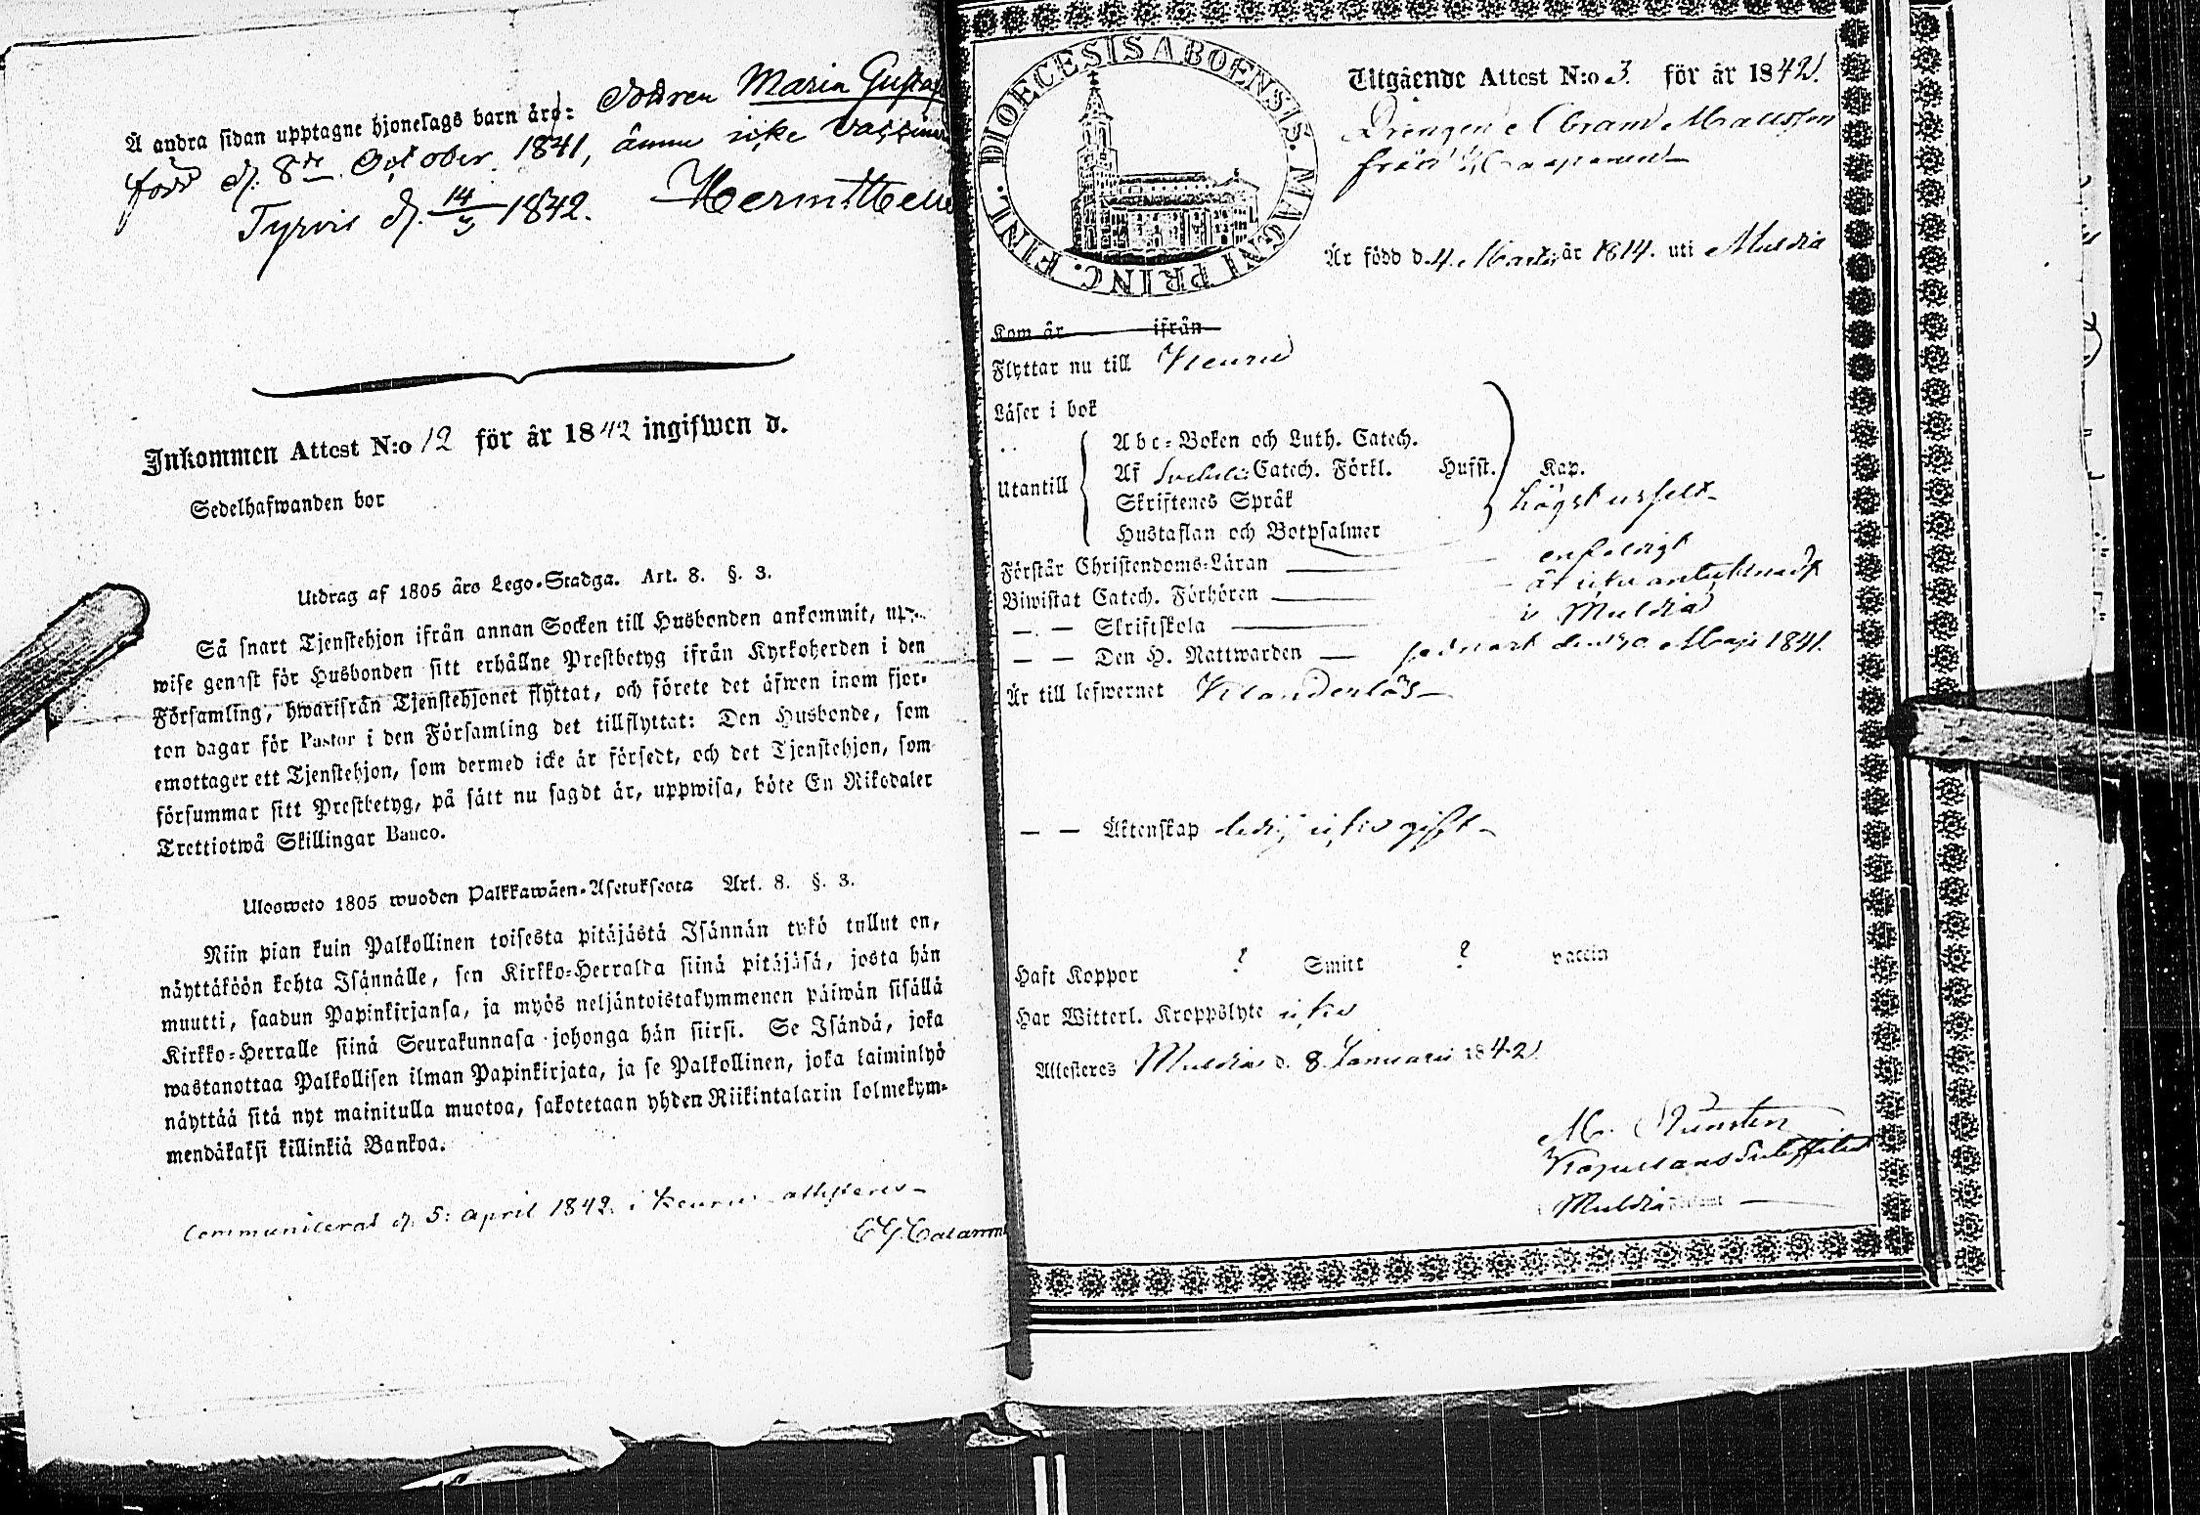 Å andra sidan upptagne hjonelags barn äro: Dottren Maria Gustaf
född d. 8de October 1841, ännu icke vaccine
Tyrvis d. 14/3 1842. Herm. Helle
Inkommen Attest N:o 12 för år 1842 ingifwen d.
Sedelhafwanden bor
Utdrag af 1805 års Lego-Stadga. Art. 8. §. 3.
Så snart Tjenstehjon ifrån annan Socken till Husbonden ankommit, upp-
wise genast för Husbonden sitt erhållne Prestbetyg ifrån Kyrkoherden i den
Församling, hwarifrån Tjenstehjonet flyttat, och förete det äfwen inom fjor-
ton dagar för Pastor i den Församling det tillflyttat: Den Husbonde, som
emottager ett Tjenstehjon, som dermed icke är försedt, och det Tjenstehjon, som
försummar sitt Prestbetyg, på sätt nu sagdt är, uppwisa, böte En Riksdaler
Trettiotwå Skillingar Banco.
Ulosweto 1805 wuoden Palkkawäen-Asetuksesta Art. 8. §. 3.
Niin pian kuin Palkollinen toisesta pitäjästä Isännän tykö tullut on,
näyttäköön kohta Isännälle, sen Kirkko-Herralda siinä pitäjäsä, josta hän
muutti, saadun Papinkirjansa, ja myös neljäntoistakymmenen päiwän sisällä
Kirkko-Herralle siinä Seurakunnasa johonga hän siirsi. Se Isändä, joka
wastanottaa Palkollisen ilman Papinkirjata, ja se Palkollinen, joka laiminlyö
näyttää sitä nyt mainitulla muotoa, sakotetaan yhden Riikintalarin kolmekym-
mendäkaksi killinkiä Bankoa.
Communicerat d. 5: April 1842. i Keuru attesteres
DIOECESIS ABOENSIS. MAGNI PRINC. FINL.
Utgående Attest N:o 3 för år 1842.
Drengen Abram Mattsson
från
Är född d. 4 Martii år 1814. uti Muldia
Kom år ifrån
Flyttar nu till Keuru
Läser i bok
Utantill
Abc-Boken och Luth. Catech.
Af Svebelii Catech. Förkl. Husst. Kap.
Skriftenes Språk
högst uselt
Hustaflan och Botpsalmer
Förstår Christendoms-Läran enfaldigt
Biwistat Catech. Förhören är icke antecknadt
— — Skriftskola i Muldia
— — Den H. Nattwarden sednast den 30 Maji 1841.
Är till lefwernet Klanderlös
— — Äktenskap ledig, icke gift
Haft Koppor ? Smitt ? vaccin
Har Witterl. Kroppslyte icke
Attesteres Muldia d. 8 Januarii 1842.
Muldia